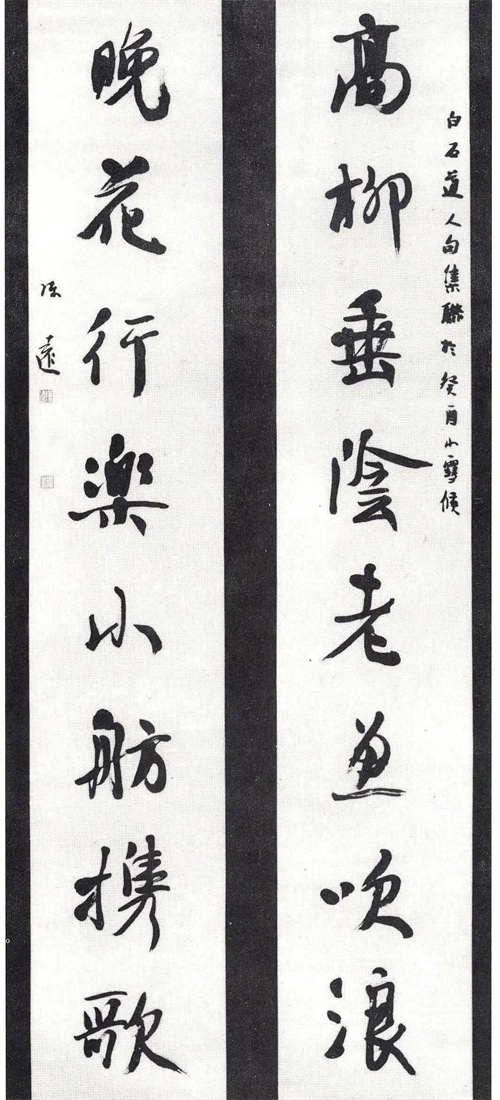 白石道人句集聯於癸酉小雪候
高柳垂陰老魚吹浪
晚花行楽小舫携歌
遠